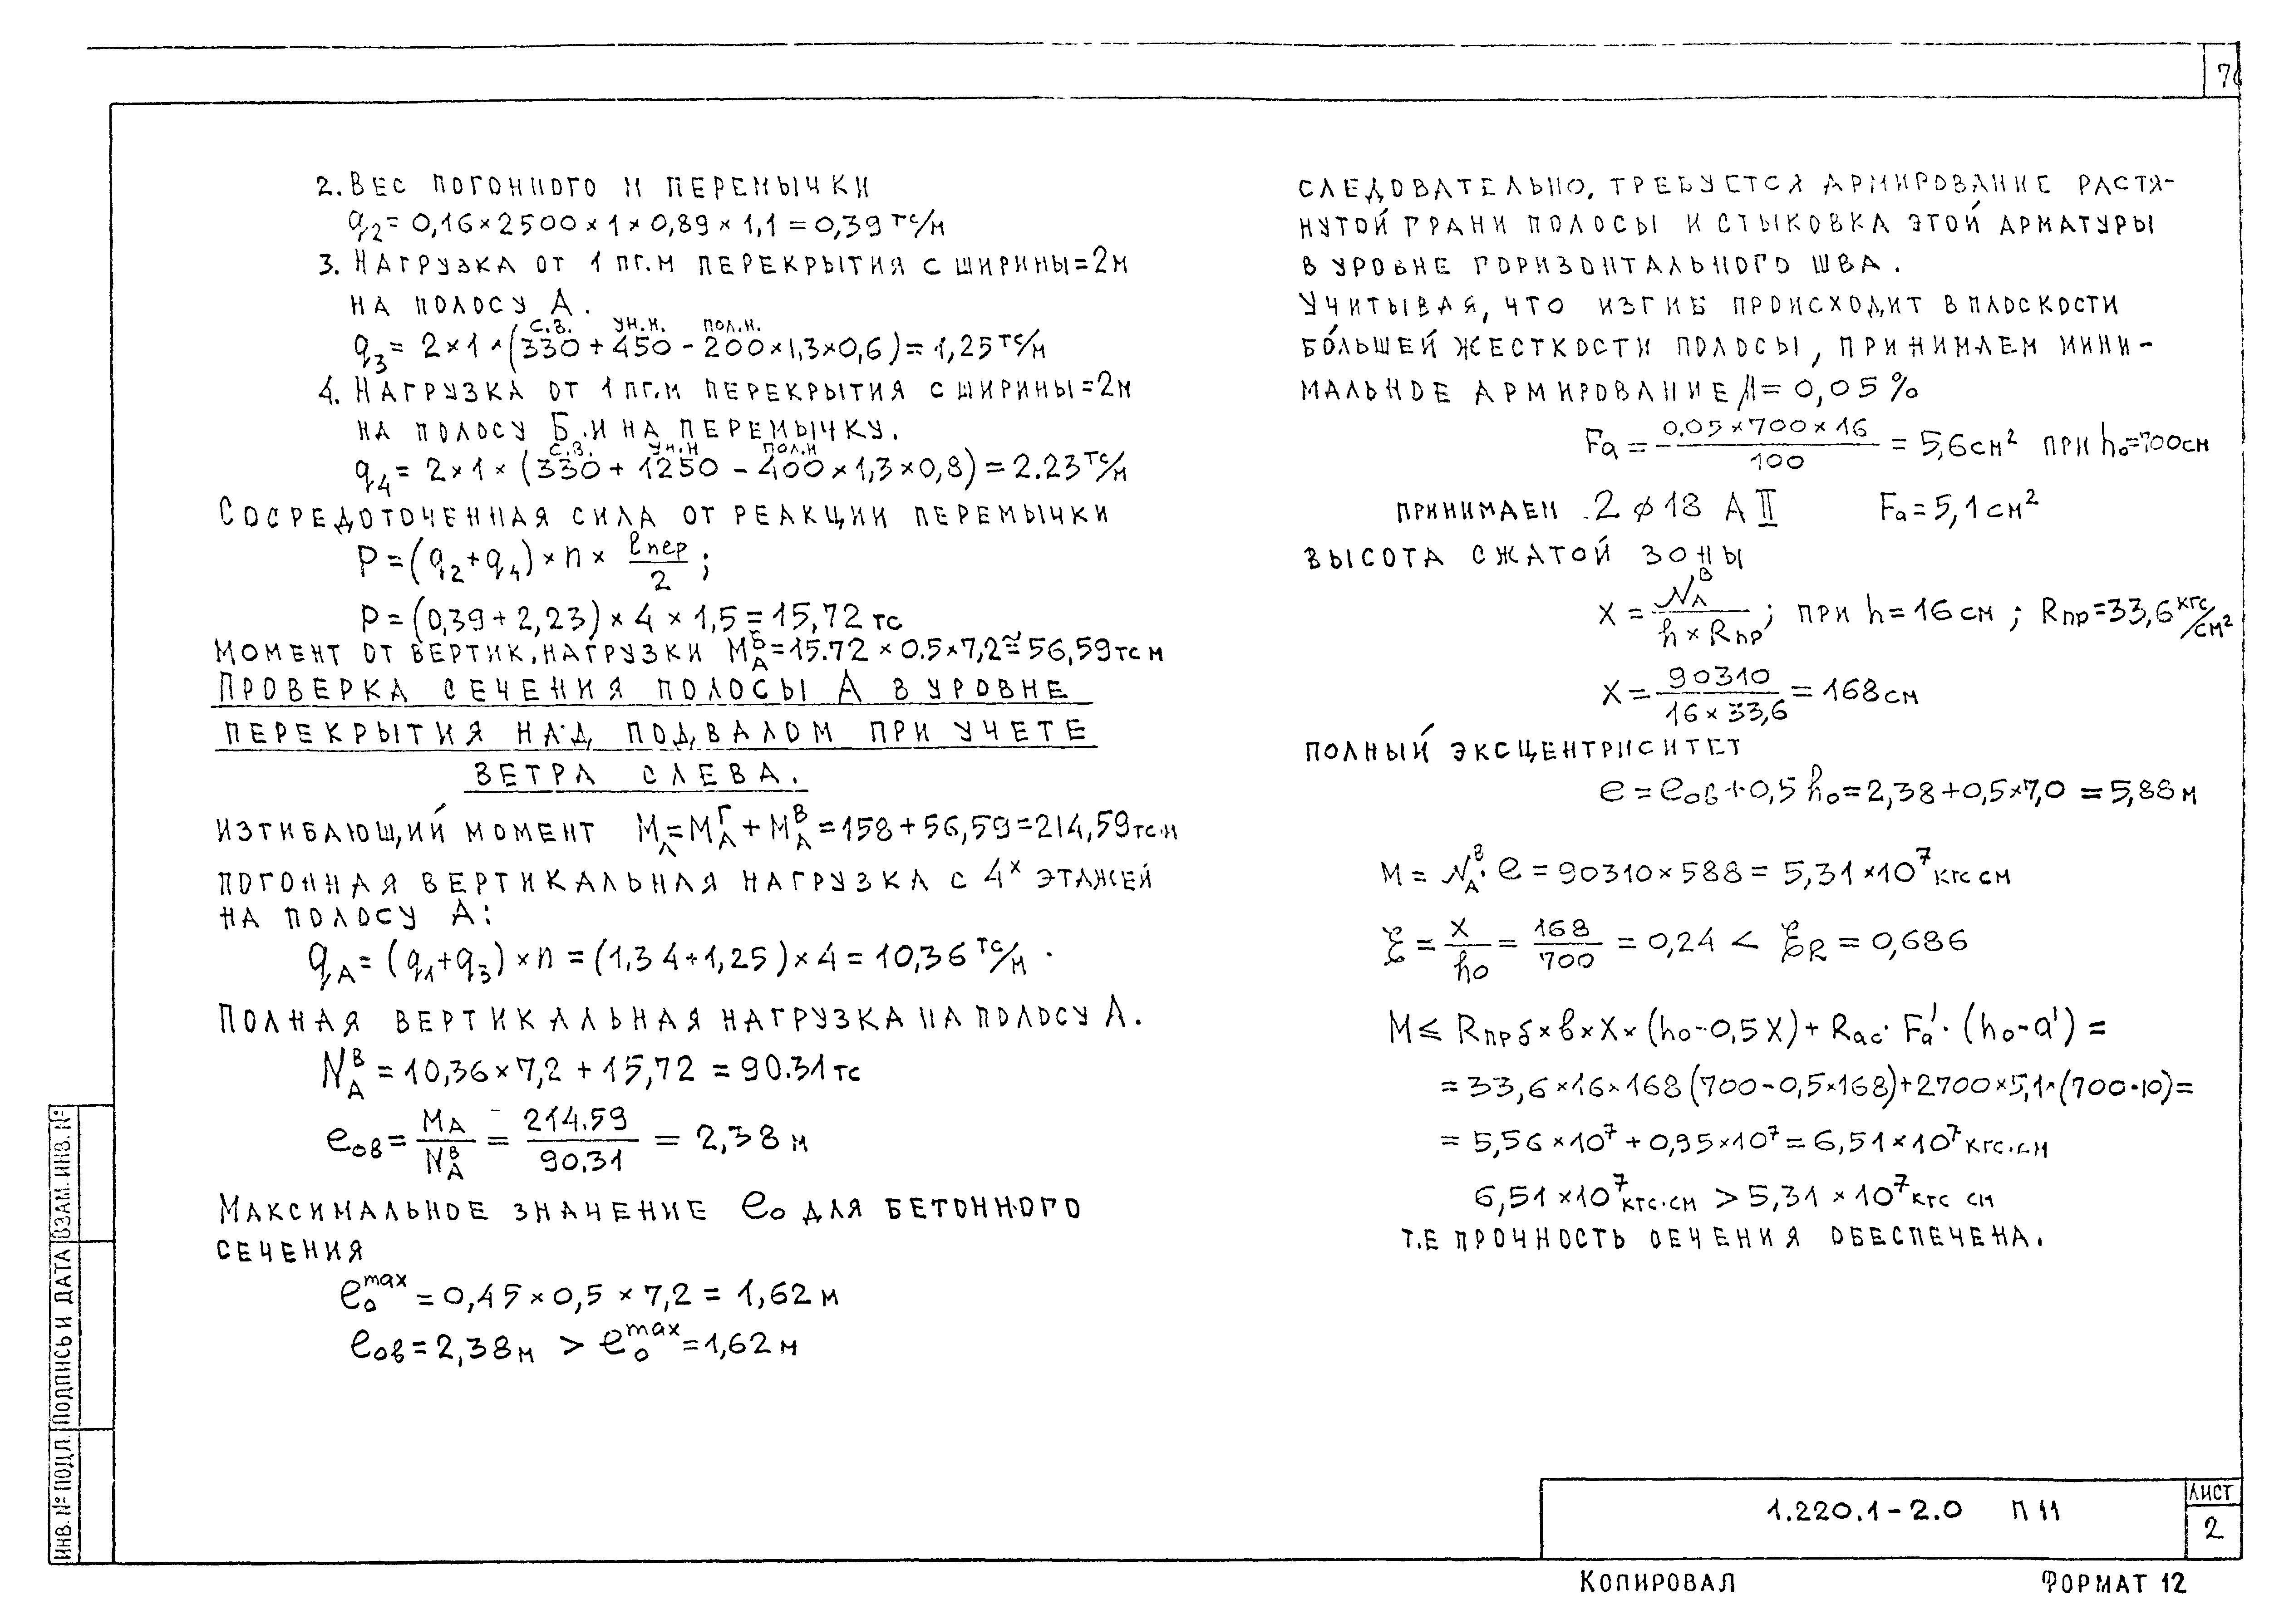 2. Вес погонного м перемычки
q₂ = 0,16 × 2500 × 1 × 0,89 × 1,1 = 0,39 тс/м
3. Нагрузка от 1 пг.м перекрытия с ширины = 2м
на полосу А.
с.в. ун.н. пол.н.
q₃ = 2 × 1 × (330 + 450 - 200 × 1,3 × 0,6) = 1,25 тс/м
4. Нагрузка от 1 пг.м перекрытия с ширины = 2м
на полосу Б и на перемычку.
с.в. ун.н пол.н
q₄ = 2 × 1 × (330 + 1250 - 400 × 1,3 × 0,8) = 2.23 тс/м
Сосредоточенная сила от реакции перемычки
P = (q₂ + q₄) × n × ℓпер/2 ;
P = (0,39 + 2,23) × 4 × 1,5 = 15,72 тс
Момент от вертик. нагрузки M_А^Б = 15.72 × 0.5 × 7,2 ≅ 56,59 тс м
Проверка сечения полосы А в уровне
перекрытия над подвалом при учете
ветра слева.
Изгибающий момент M_А = M_А^Г + M_А^В = 158 + 56,59 = 214,59 тс·м
Погонная вертикальная нагрузка с 4х этажей
на полосу А:
q_А = (q₁ + q₃) × n = (1,34 + 1,25) × 4 = 10,36 тс/м.
Полная вертикальная нагрузка на полосу А.
N_А^В = 10,36 × 7,2 + 15,72 = 90.31 тс
e₀в = M_А/N_А^В = 214.59/90.31 = 2,38 м
Максимальное значение e₀ для бетонного
сечения
e₀^max = 0,45 × 0,5 × 7,2 = 1,62 м
e₀в = 2,38 м > e₀^max = 1,62 м
следовательно, требуется армирование растя-
нутой грани полосы и стыковка этой арматуры
в уровне горизонтального шва.
Учитывая, что изгиб происходит в плоскости
бо́льшей жесткости полосы, принимаем мини-
мальное армирование μ = 0,05 %
Fа = 0,05 × 700 × 16/100 = 5,6 см² при h₀ = 700 см
принимаем 2 ⌀ 18 А II Fа = 5,1 см²
Высота сжатой зоны
X = N_А^В/h × Rпр ; при h = 16 см ; Rпр = 33,6 кгс/см²
X = 90310/16 × 33,6 = 168 см
Полный эксцентриситет
e = e₀в + 0,5 h₀ = 2,38 + 0,5 × 7,0 = 5,88 м
M = N_А^В · e = 90310 × 588 = 5,31 × 10⁷ кгс см
ξ = X/h₀ = 168/700 = 0,24 < ξ_R = 0,686
M ≤ Rпр б × в × X × (h₀ - 0,5 X) + Rас · Fа' · (h₀ - а') =
= 33,6 × 16 × 168 (700 - 0,5 × 168) + 2700 × 5,1 × (700 · 10) =
= 5,56 × 10⁷ + 0,95 × 10⁷ = 6,51 × 10⁷ кгс.см
6,51 × 10⁷ кгс·см > 5,31 × 10⁷ кгс см
т.е прочность сечения обеспечена.
Взам. инв. №
Подпись и дата
Инв. № подл.
1.220.1 - 2.0 П 11
Лист
2
Копировал Формат 12